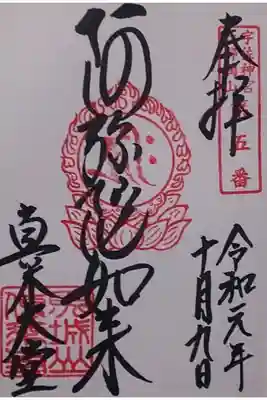 奉拝
五番
令和元年
十月九日
阿弥陀如来
真木大堂